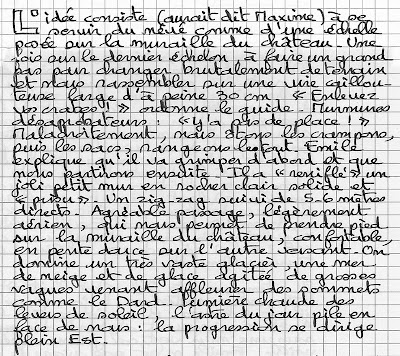 L'idée consiste (aurait dit Maxime) à se
servir du névé comme d'une échelle
posée sur la muraille du château. Une
fois sur le dernier échelon, à faire un grand
pas pour changer brutalement de terrain
et nous rassembler sur une vire caillou-
teuse large d'à peine 30 cm. « Enlevez
vos crampons ! » ordonne le guide. Murmures
désaprobateurs : « y'a pas de place ! »
Maladroitement, nous ôtons les crampons,
puis les sacs, rangeons le tout. Emile
explique qu'il va grimper d'abord et que
nous partirons ensuite. Il a « reniflé » un
joli petit mur en rocher clair solide et
« prisu ». Un zig-zag suivi de 5-6 mètres
directs. Agréable passage, légèrement
aérien, qui nous permet de prendre pied
sur la muraille du château, confortable,
en pente douce sur l'autre versant. On
domine un très vaste glacier, une mer
de neige et de glace agitée de grosses
vagues venant affleurer des sommets
comme le Dard. Lumière chaude des
levers de soleil, l'astre du jour pile en
face de nous : la progression se dirige
plein Est.